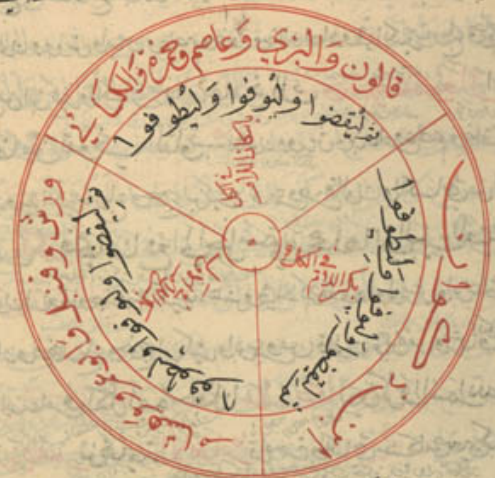 قالون والبزي وعاصم وحمزة والكسائي
ثم ليقضوا وليوفوا وليطوفوا
باسكان اللام
في الكل
ابن ذكوان
ثم ليقضوا وليوفوا وليطوفوا
بكسر اللام
في
ورش وقنبل وابو عمرو وهشام
ثم ليقضوا وليوفوا وليطوفوا